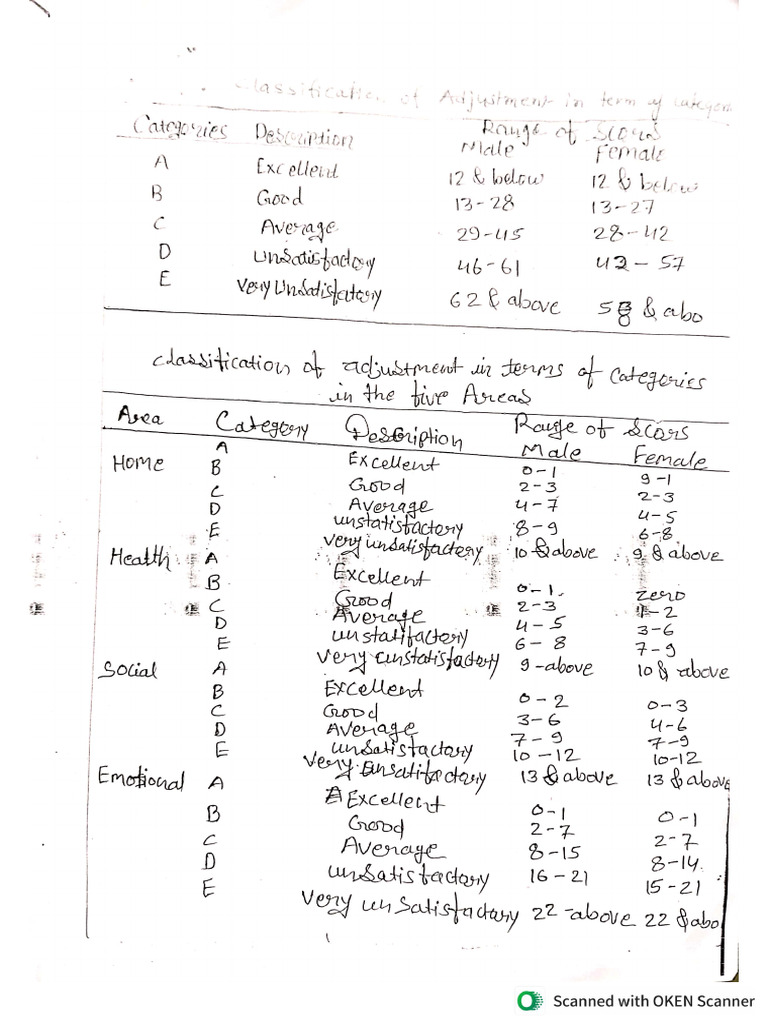 Classification of Adjustment in term of categori
Categories Description Range of Scors
Male Female
A Excellent 12 & below 12 & below
B Good 13-28 13-27
C Average 29-45 28-42
D unsatisfactory 46-61 43-57
E very unsatisfatary 62 & above 58 & abo
classification of adjustment in terms of categories
in the five Areas
Area Category Description Range of scors
Male Female
Home A Excellent 0-1 9-1
B Good 2-3 2-3
C Average 4-7 4-5
D unstatisfactory 8-9 6-8
E very unsatisfactory 10 & above 9 & above
Health A Excellent 0-1. zero
B Good 2-3 1-2
C Average 4-5 3-6
D unstatifactory 6-8 7-9
E very unstatisfactory 9-above 10 & above
Social A Excellent 0-2 0-3
B Good 3-6 4-6
C Average 7-9 7-9
D unsatisfactory 10-12 10-12
E very unsatifactory 13 & above 13 & above
Emotional A Excellent 0-1 0-1
B Good 2-7 2-7
C Average 8-15 8-14.
D unsatisfactory 16-21 15-21
E very unsatisfactary 22-above 22 & abo
Scanned with OKEN Scanner